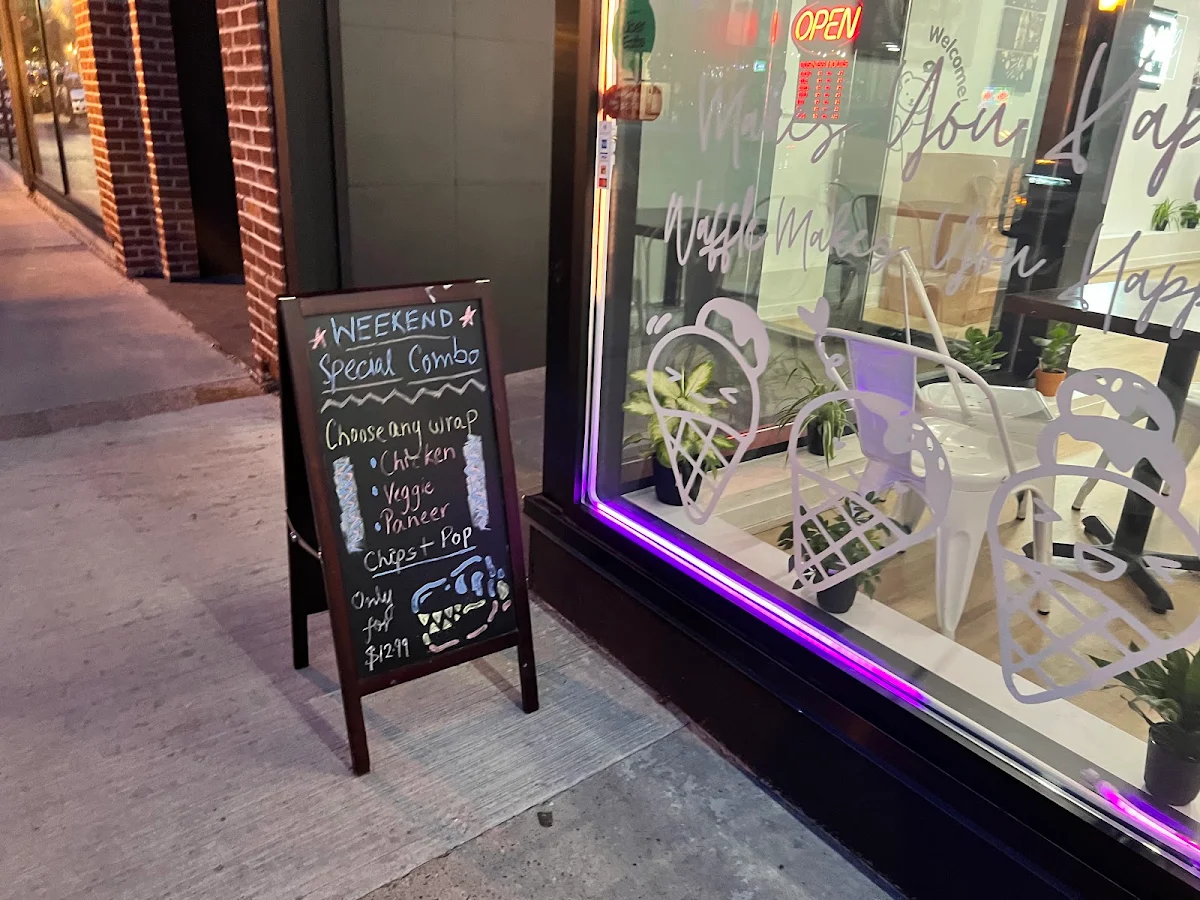 WEEKEND
Special Combo
Choose any wrap
• Chicken
• Veggie
• Paneer
Chips + Pop
Only
for
$12.99
OPEN
Welcome
Makes You Hap
Waffle Makes You Happ